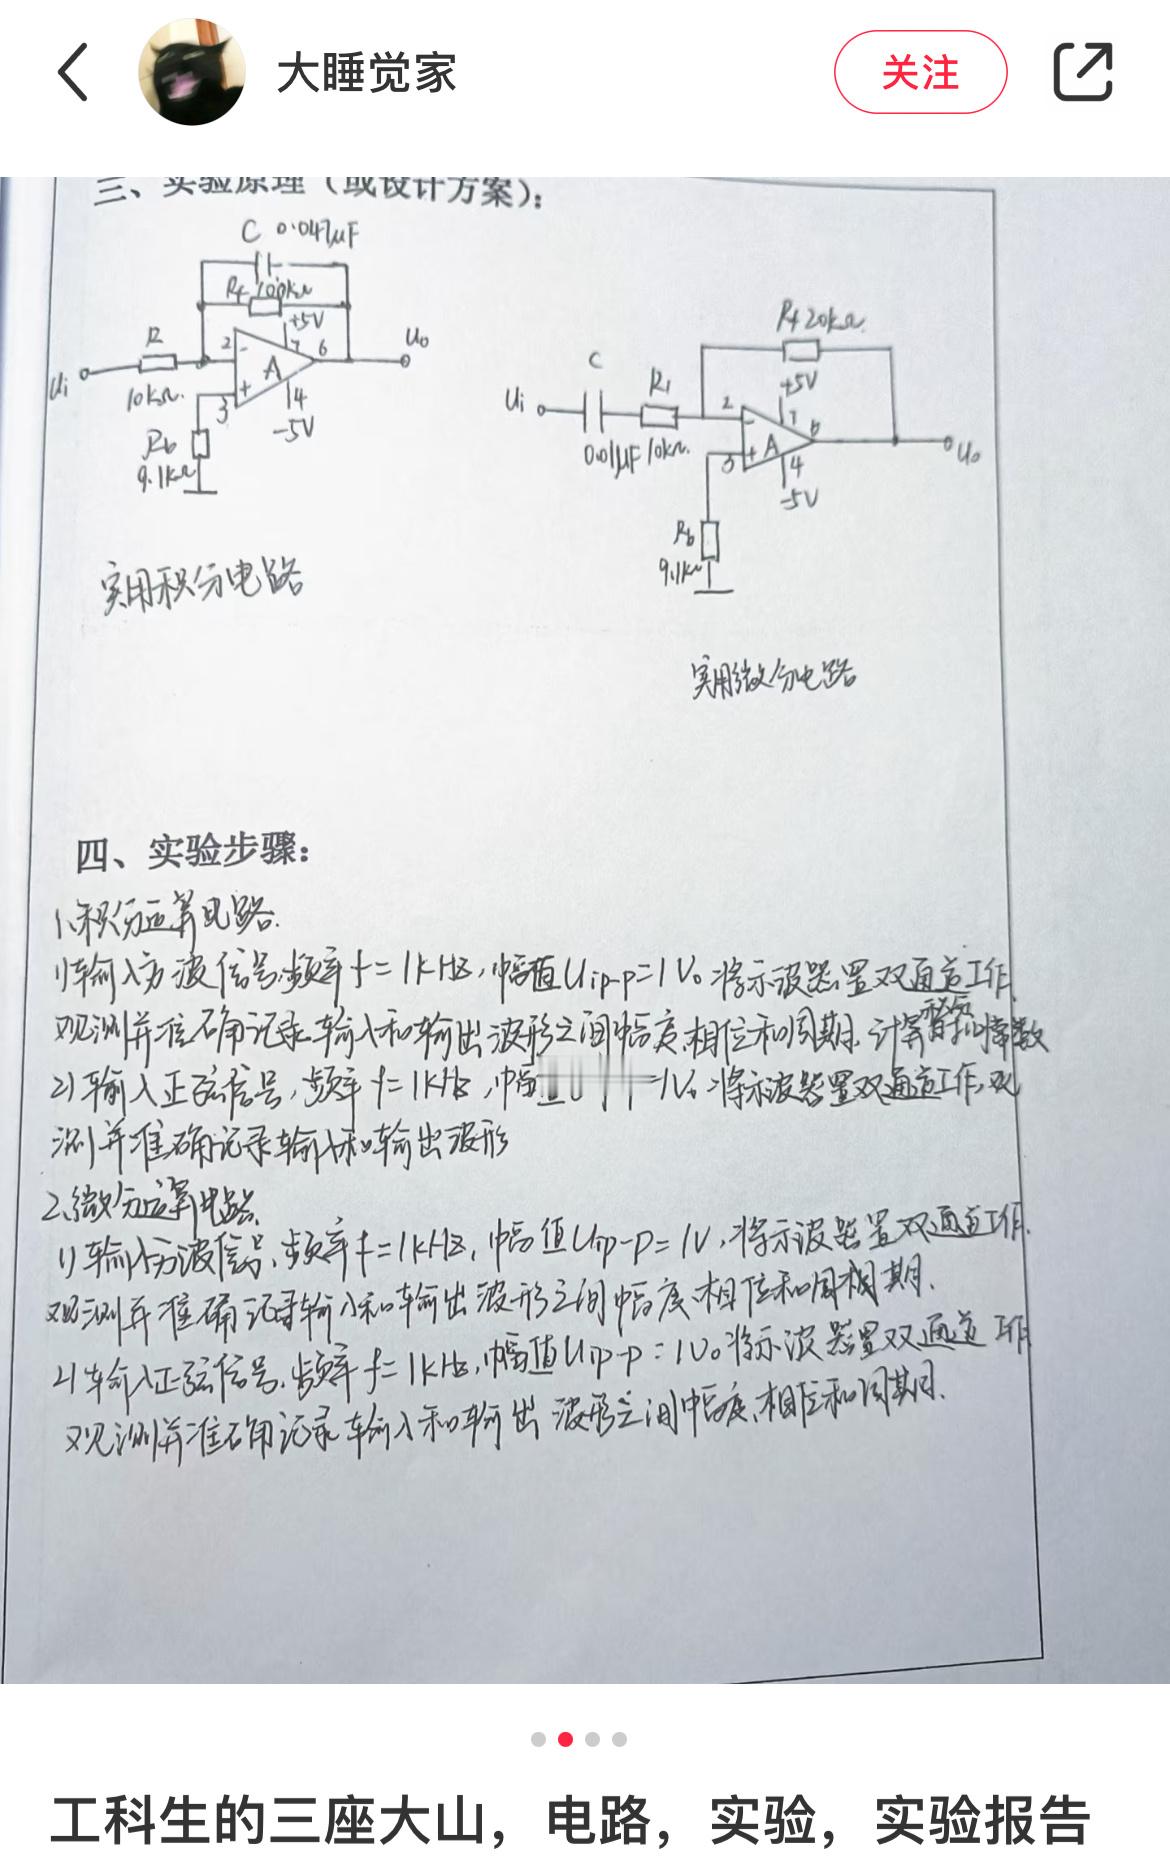 大睡觉家
关注
三、实验原理（或设计方案）：
C 0.047μF
Rf 100kΩ
+5V
R
2
-
7
6
Uo
A
Ui
10kΩ
+
3
4
-5V
Rb
9.1kΩ
实用积分电路
Rf 20kΩ
C
R1
+5V
Ui
2
-
7
6
0.01μF 10kΩ
3
+
A
4
Uo
-5V
Rb
9.1kΩ
实用微分电路
四、实验步骤：
1、积分运算电路.
1)输入方波信号,频率f=1kHz,幅值Uip-p=1V。将示波器置双通道工作,
观测并准确记录输入和输出波形之间幅度,相位和周期.计算 常数
2)输入正弦信号,频率f=1kHz,幅 =1V。将示波器置双通道工作,观
测并准确记录输入和输出波形
2、微分运算电路.
1)输入方波信号,频率f=1kHz,幅值Uip-p=1V,将示波器置双通道工作.
观测并准确记录输入和输出波形之间幅度、相位和周期.
2)输入正弦信号,频率f=1kHz,幅值Uip-p=1V。将示波器置双通道工作
观测并准确记录输入和输出波形之间幅度,相位和周期.
工科生的三座大山，电路，实验，实验报告